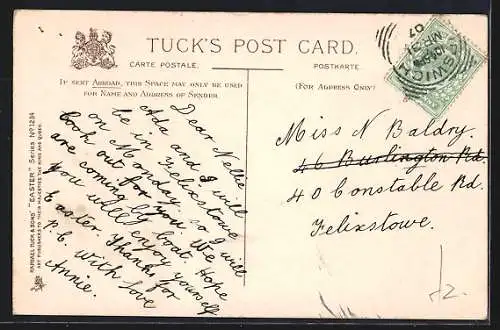 TUCK'S POST CARD.
CARTE POSTALE.
POSTKARTE.
If sent Abroad, this Space may only be used
for Name and Address of Sender.
(For Address Only)
IPSWICH
MR 31
07
Dear Nellie
Ada and I will
be in Felixstowe
on Monday so I will
look out for you. We
are coming by boat. Hope
you will enjoy yourself
Easter. Thanks for
P.C. With love
Annie.
Miss N Baldry.
46 Burlington Rd.
40 Constable Rd.
Felixstowe.
RAPHAEL TUCK & SONS' "EASTER" Series No 1234
ART PUBLISHERS TO THEIR MAJESTIES THE KING AND QUEEN.